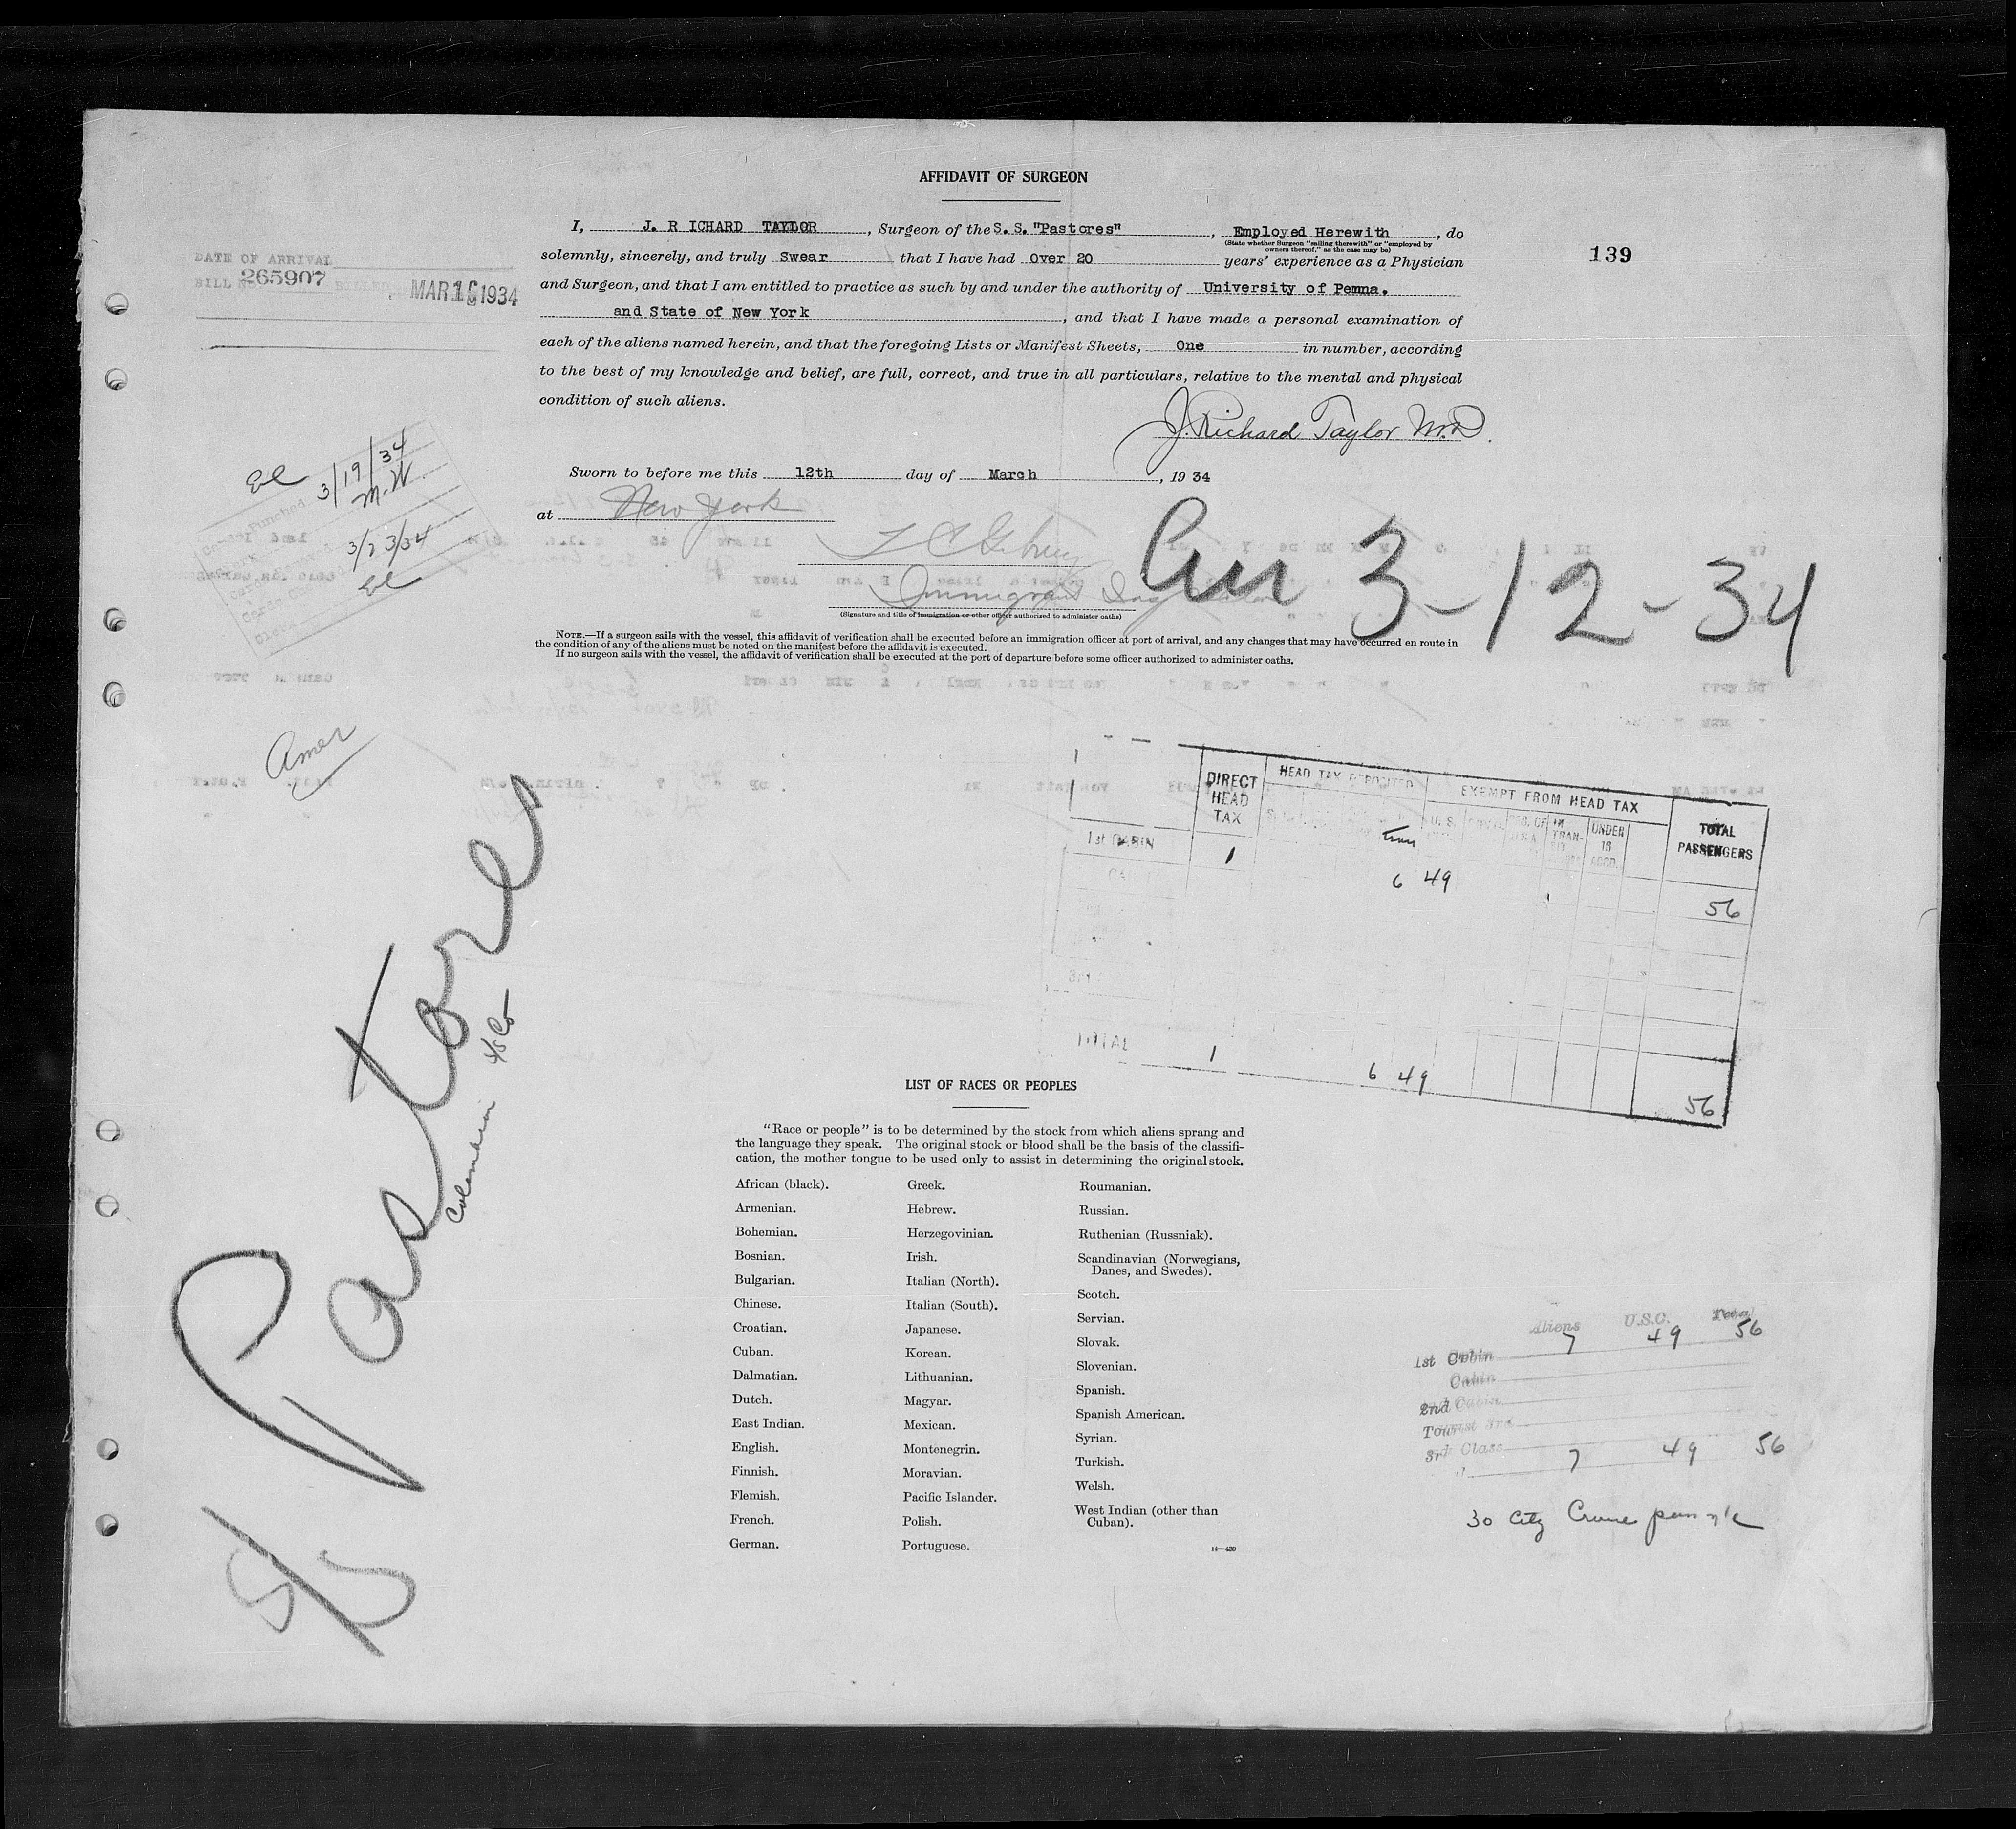 AFFIDAVIT OF SURGEON
I, J. R ICHARD TAYLOR, Surgeon of the S. S. "Pastores", Employed Herewith, do
(State whether Surgeon "sailing therewith" or "employed by
owners thereof," as the case may be)
solemnly, sincerely, and truly Swear that I have had over 20 years' experience as a Physician
and Surgeon, and that I am entitled to practice as such by and under the authority of University of Penna.
and State of New York, and that I have made a personal examination of
each of the aliens named herein, and that the foregoing Lists or Manifest Sheets, One in number, according
to the best of my knowledge and belief, are full, correct, and true in all particulars, relative to the mental and physical
condition of such aliens.
139
DATE OF ARRIVAL
BILL No. 265907 BILLED MAR 16 1934
J. Richard Taylor M.D.
Sworn to before me this 12th day of March, 19 34
at New York
Immigrant
(Signature and title of immigration or other officer authorized to administer oaths)
3-12-34
NOTE.—If a surgeon sails with the vessel, this affidavit of verification shall be executed before an immigration officer at port of arrival, and any changes that may have occurred en route in
the condition of any of the aliens must be noted on the manifest before the affidavit is executed.
If no surgeon sails with the vessel, the affidavit of verification shall be executed at the port of departure before some officer authorized to administer oaths.
El 3/19/34
M.W
3/23/34
El
Amer
Pastores
Colombian SS Co
SS
DIRECT HEAD TAX
HEAD TAX DEPOSITED
EXEMPT FROM HEAD TAX
TOTAL PASSENGERS
U. S.
IN TRANSIT
UNDER 16 ACCP.
1st CABIN 1 6 49 56
3rd
TOTAL 1 6 49 56
LIST OF RACES OR PEOPLES
"Race or people" is to be determined by the stock from which aliens sprang and
the language they speak. The original stock or blood shall be the basis of the classifi-
cation, the mother tongue to be used only to assist in determining the original stock.
African (black).
Armenian.
Bohemian.
Bosnian.
Bulgarian.
Chinese.
Croatian.
Cuban.
Dalmatian.
Dutch.
East Indian.
English.
Finnish.
Flemish.
French.
German.
Greek.
Hebrew.
Herzegovinian.
Irish.
Italian (North).
Italian (South).
Japanese.
Korean.
Lithuanian.
Magyar.
Mexican.
Montenegrin.
Moravian.
Pacific Islander.
Polish.
Portuguese.
Roumanian.
Russian.
Ruthenian (Russniak).
Scandinavian (Norwegians,
Danes, and Swedes).
Scotch.
Servian.
Slovak.
Slovenian.
Spanish.
Spanish American.
Syrian.
Turkish.
Welsh.
West Indian (other than
Cuban).
14—430
Aliens U.S.C. Total
1st Cabin 7 49 56
Cabin
2nd Cabin
Tourist 3rd
3rd Class
7 49 56
30 City